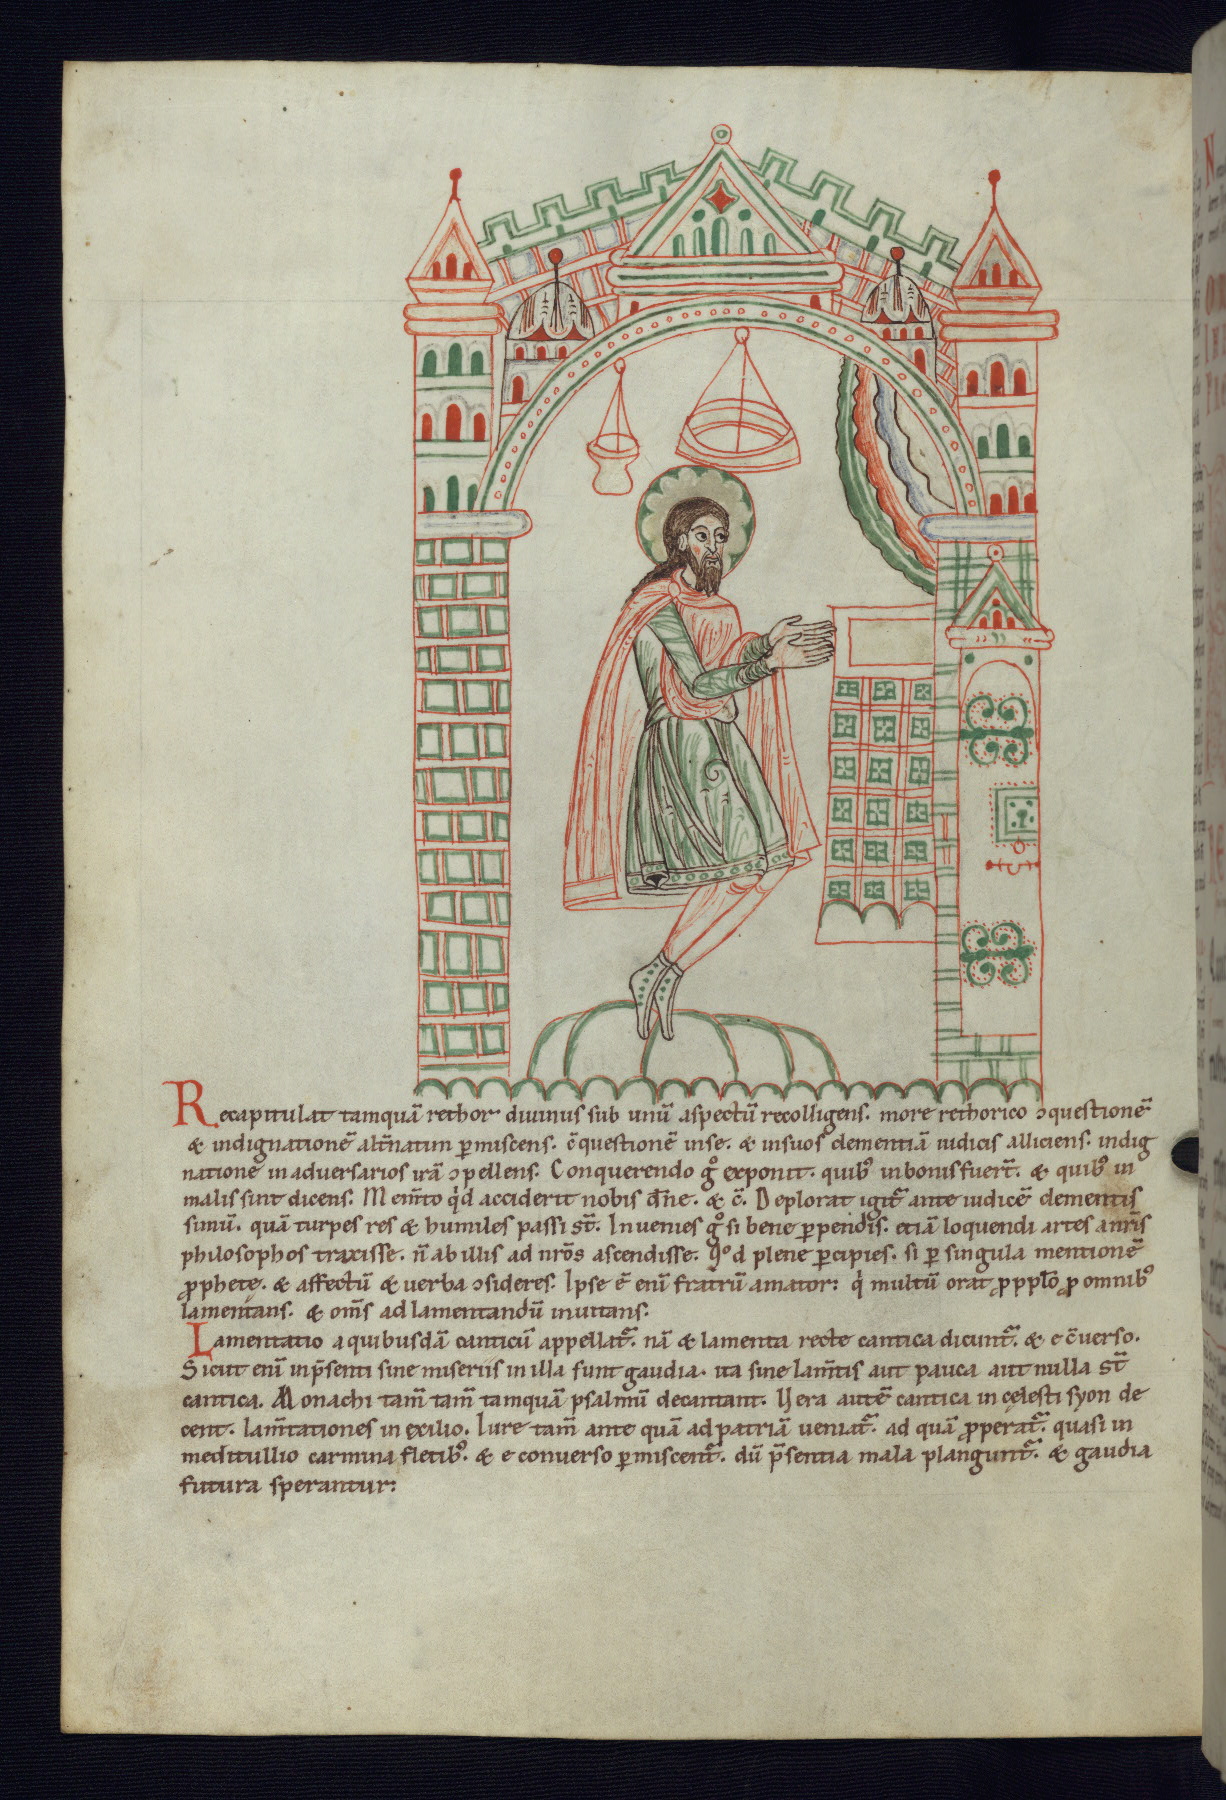 Recapitulat tamquā rethor diuinus sub unū aspectū recolligens. more rethorico ɔquestionē
& indignationē alt̄natim p̱miscens. c̄questionē in se. & in suos clementiā iudicis alliciens. indig
nationē in aduersarios irā ɔpellens. Conquerendo gͦ exponit. quibꝰ in bonis fuer̄t. & quibꝰ in
malis sint dicens. Mem̄to qͥd acciderit nobis dn̄e. & c̄. Deplorat igit᷑ ante iudicē clementis
simū. quā turpes res & humiles passi st̄. Inuenies gͦ si bene ꝑpendis. etiā loquendi artes a nr̄is
philosophos traxisse. n̄ ab illis ad nr̄os ascendisse. qͦd plene ꝑcipies. si ꝑ singula mentionē
ꝓphete. & affectū & uerba ɔsideres. Ipse ē enī fratrū amator: qͥ multū orat ꝓ ppl̄o ꝓ omnibꝰ
lamentans. & om̄s ad lamentandū inuitans.
Lamentatio a quibusdā canticū appellat᷑. nā & lamenta recte cantica dicunt᷑. & e c̄uerso.
Sicut enī in p̄senti sine miseriis in illa sunt gaudia. ita sine lam̄tis aut pauca aut nulla st̄
cantica. Monachi tam̄ tam̄ tamquā psalmū decantant. Uera autē cantica in cęlesti syon de
cent. lam̄tationes in exilio. Iure tam̄ ante quā ad patriā ueniat᷑. ad quā ꝓperat᷑. quasi in
meditullio carmina fletibꝰ. & e conuerso ꝑmiscent᷑. dū p̄sentia mala plangunt᷑. & gaudia
futura sperantur: